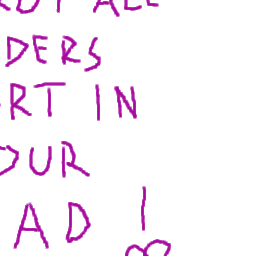 ALL
DERS
RT IN
OUR
AD !